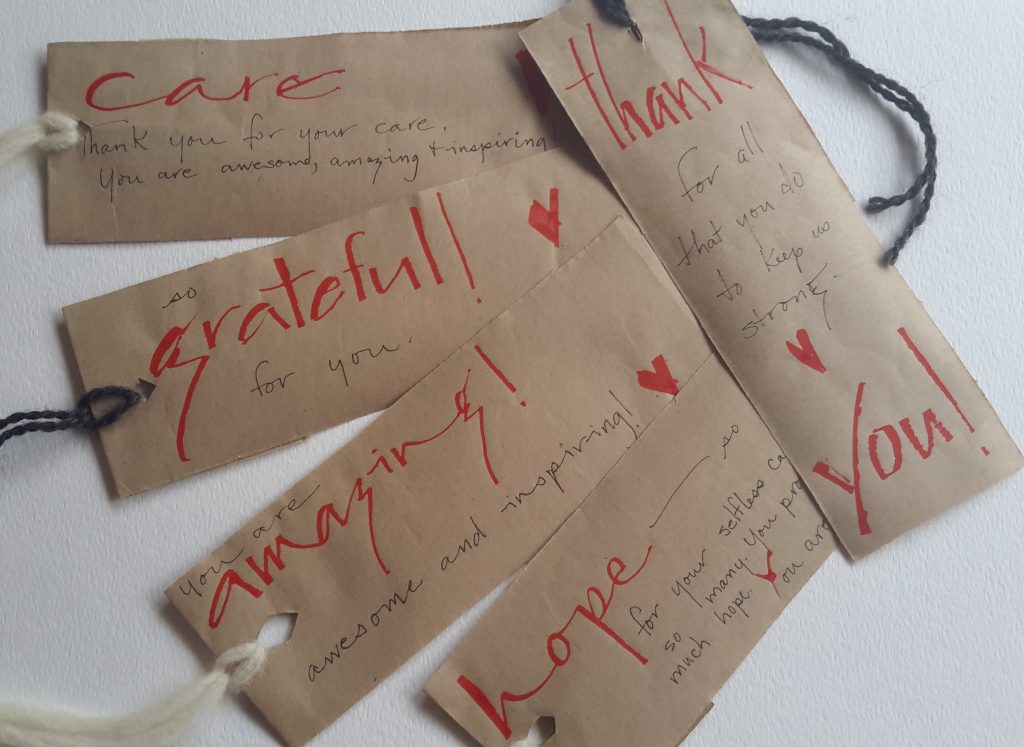 care
Thank you for your care.
You are awesome, amazing + inspiring!
so
grateful!
for you.
you are
amazing!
awesome and inspiring!
hope — so
for your selfless
so many. You
much hope. You
thank
for all
that you do
to keep us
strong.
you!